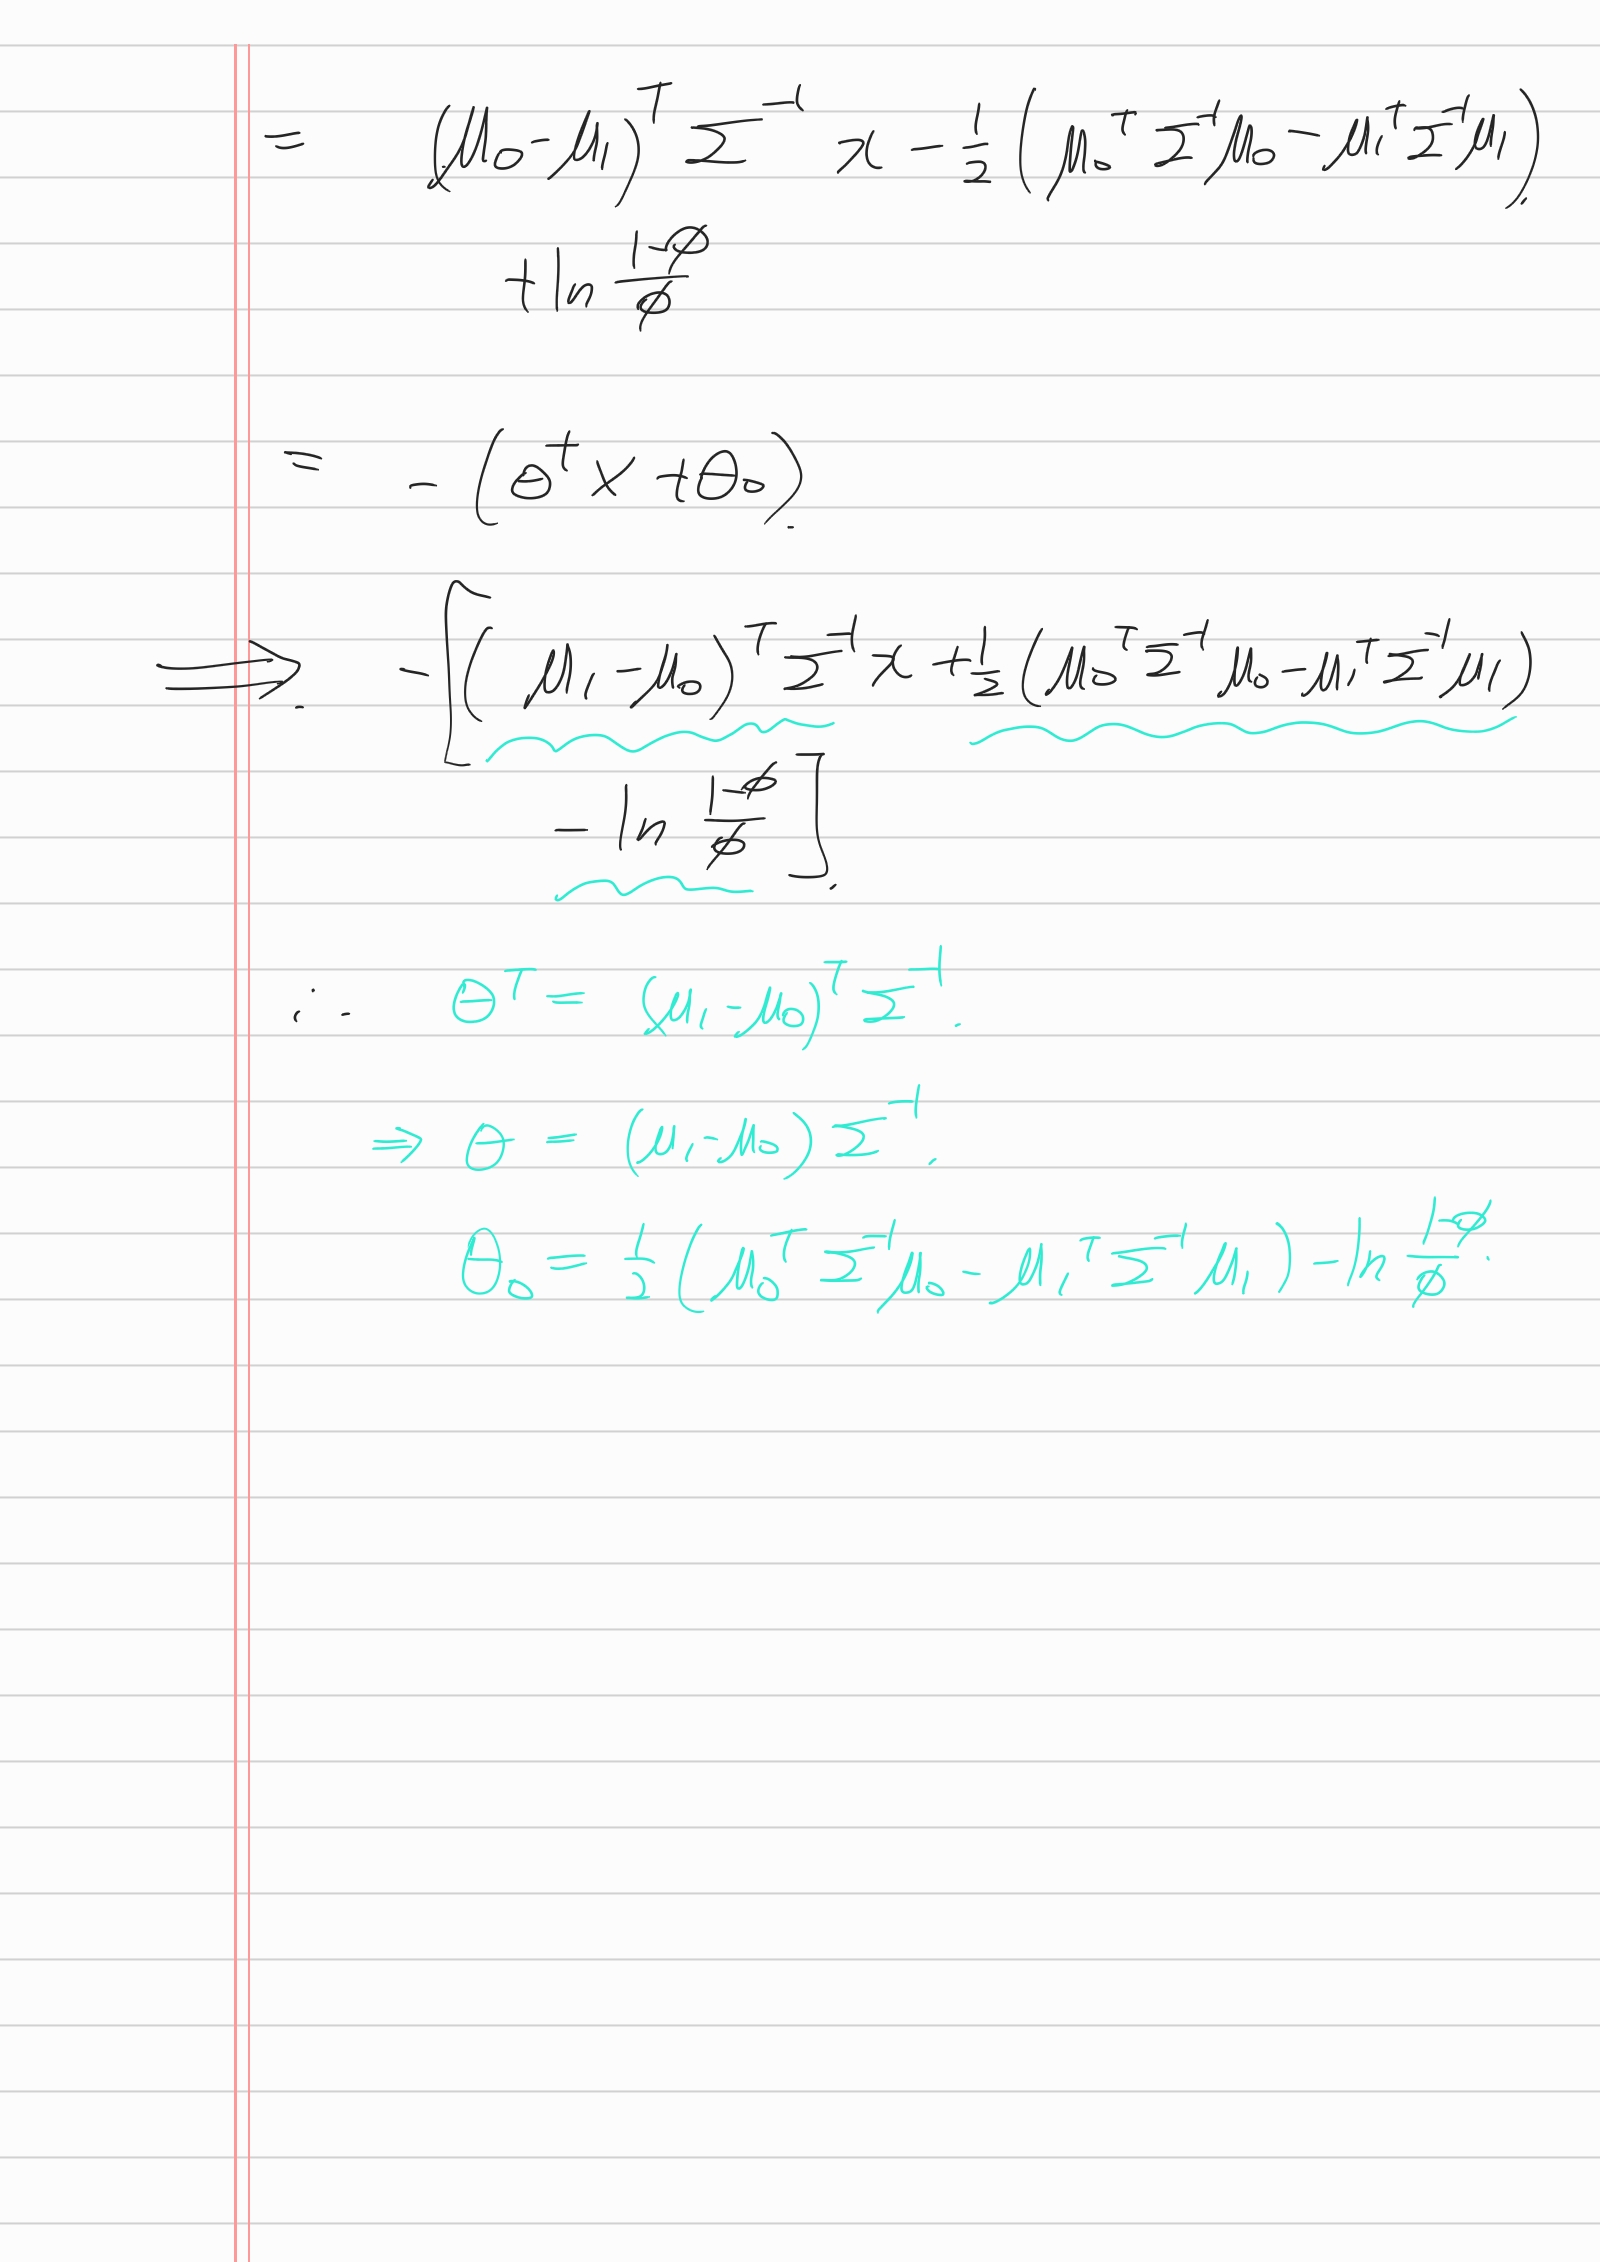 = (μ₀-μ₁)ᵀ Σ⁻¹ x - ½ (μ₀ᵀ Σ⁻¹ μ₀ - μ₁ᵀ Σ⁻¹ μ₁).
+ ln (1-φ)/φ
= - (θᵀ x + θ₀).
⟹. - [(μ₁-μ₀)ᵀ Σ⁻¹ x + ½ (μ₀ᵀ Σ⁻¹ μ₀ - μ₁ᵀ Σ⁻¹ μ₁)
- ln (1-φ)/φ ].
∴ θᵀ = (μ₁-μ₀)ᵀ Σ⁻¹.
⇒ θ = (μ₁-μ₀) Σ⁻¹.
θ₀ = ½ (μ₀ᵀ Σ⁻¹ μ₀ - μ₁ᵀ Σ⁻¹ μ₁) - ln (1-φ)/φ.